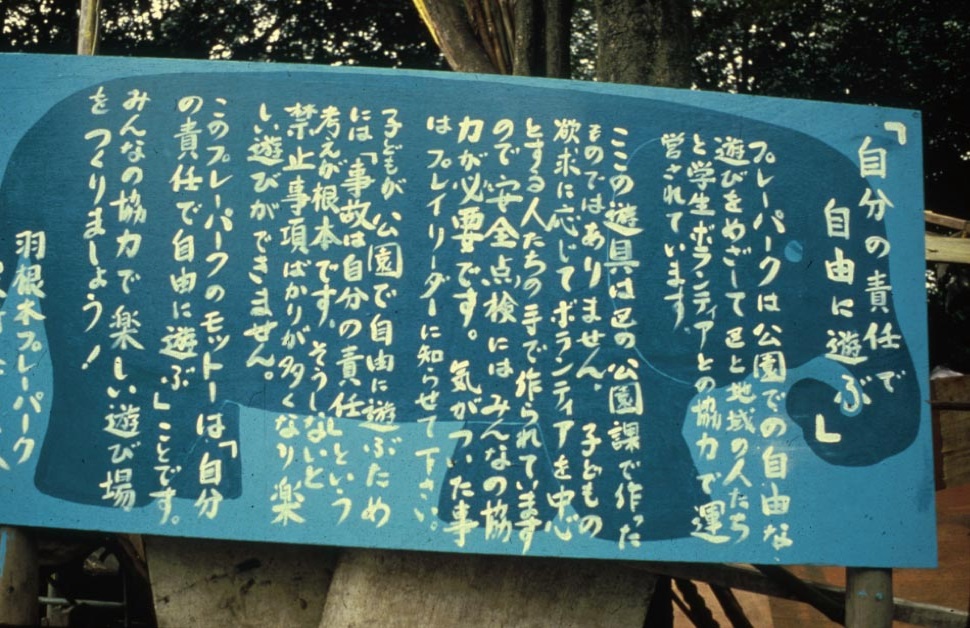 「自分の責任で
自由に遊ぶ」
プレーパークは公園での自由な
遊びをめざして区と地域の人たち
と学生ボランティアとの協力で運
営されています。
ここの遊具は区の公園課で作った
ものではありません。子どもの
欲求に応じてボランティアを中心
とする人たちの手で作られています
ので安全点検にはみんなの協
力が必要です。気がついた事
はプレイリーダーに知らせて下さい。
子どもが公園で自由に遊ぶため
には「事故は自分の責任」という
考えが根本です。そうしないと
禁止事項ばかりが多くなり楽
しい遊びができません。
このプレーパークのモットーは「自分
の責任で自由に遊ぶ」ことです。
みんなの協力で楽しい遊び場
をつくりましょう!
羽根木プレーパーク